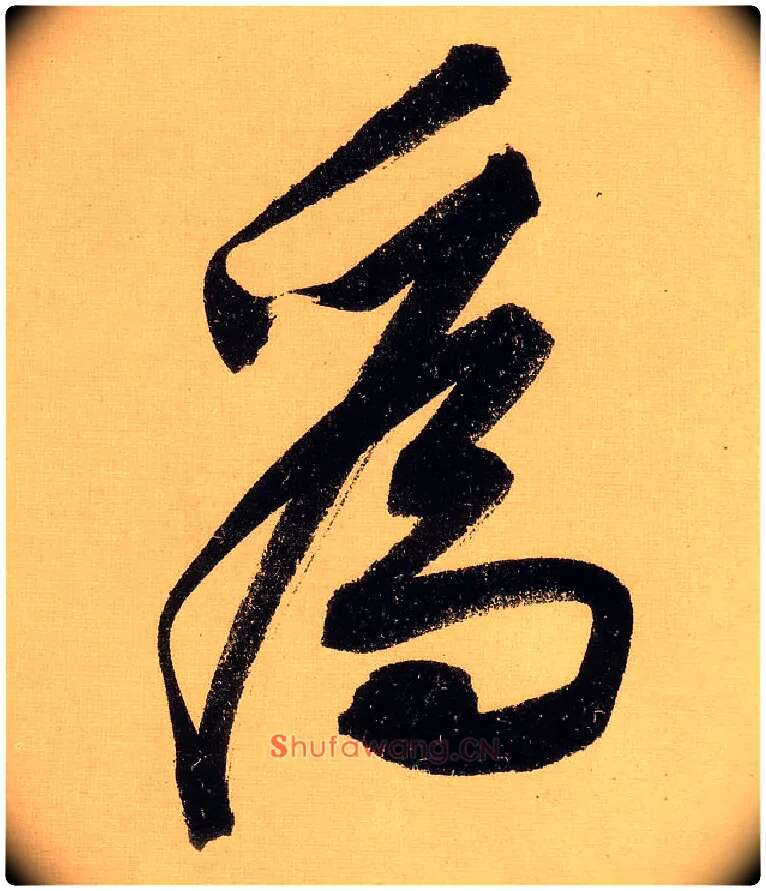 爲
Shufawang.CN